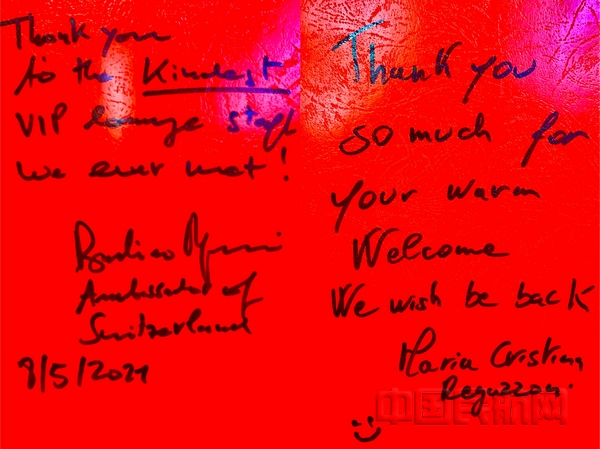 Thank you
to the Kindest
VIP lounge staff
we ever met!
Ambassador of
Switzerland
8/5/2021
Thank you
so much for
your warm
Welcome
We wish be back
Maria Cristina
Regazzoni
中国民航网